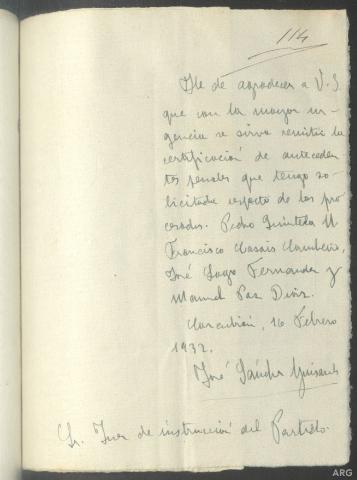 114
He de agradecer a V.S.
que con la mayor ur-
gencia se sirva remitir la
certificación de anteceden-
tes penales que tengo so-
licitada respecto de los pro-
cesados. Pedro Quintela
Francisco Casais
José Lago Fernandez y
Manuel Paz
Corcubión, 16 Febrero
1932.
José Sánchez
Sr. Juez de instrucción del Partido.
ARG